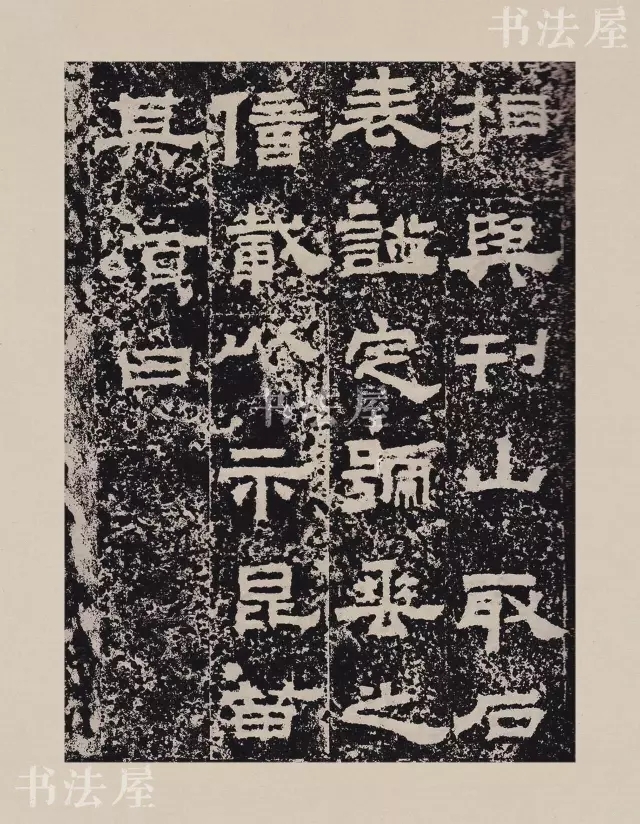 书法屋
相與刊山取石
表謚定號垂之
億載以示昆苗
其曰
书法屋
书法屋